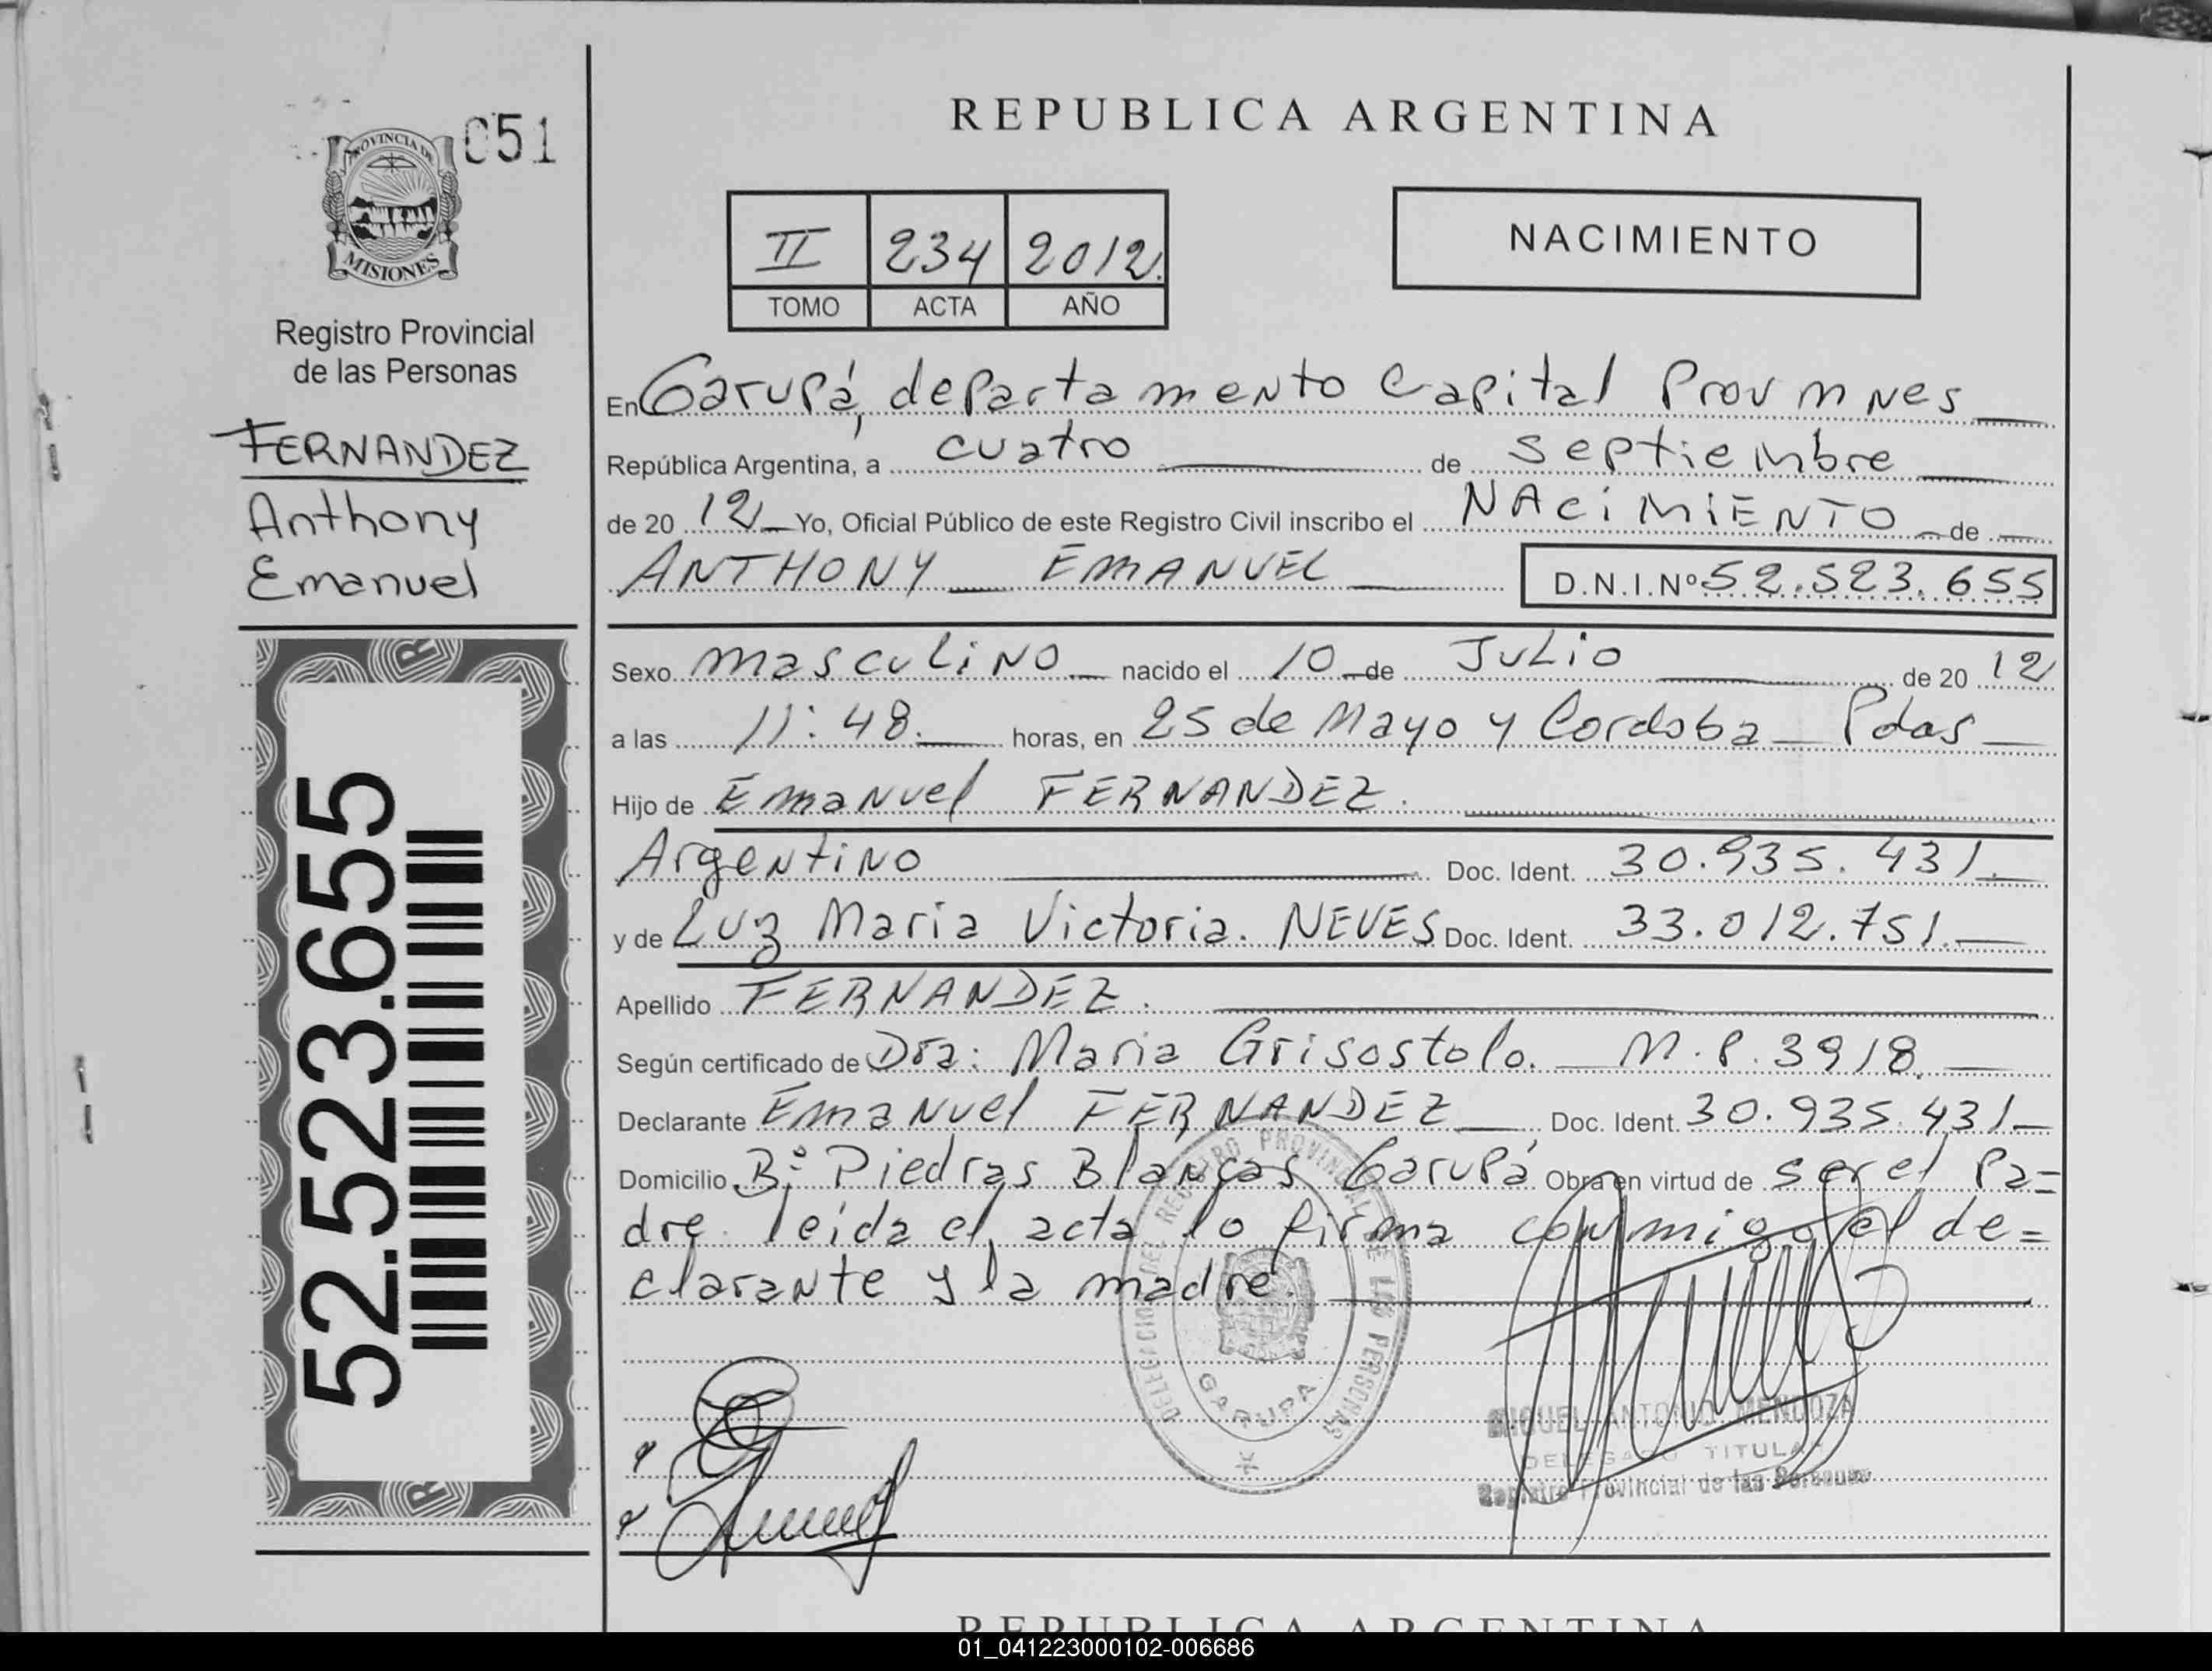 REPUBLICA ARGENTINA
051
PROVINCIA DE
MISIONES
Registro Provincial
de las Personas
FERNANDEZ
Anthony
Emanuel
52.523.655
II 234 2012.
TOMO ACTA AÑO
NACIMIENTO
En Garupá, departamento Capital Prov mnes
República Argentina, a cuatro de septiembre
de 20 12 Yo, Oficial Público de este Registro Civil inscribo el NACIMIENTO de
ANTHONY EMANUEL D.N.I.Nº 52.523.655
Sexo masculino nacido el 10 de Julio de 20 12
a las 11:48. horas, en 25 de Mayo y Cordoba Pdas
Hijo de Emanuel FERNANDEZ.
Argentino Doc. Ident. 30.935.431.
y de Luz Maria Victoria. NEVES Doc. Ident. 33.012.751.
Apellido FERNANDEZ.
Según certificado de Dra: Maria Grisostolo. M.P. 3918.
Declarante Emanuel FERNANDEZ Doc. Ident. 30.935.431
Domicilio Bº Piedras Blancas Garupá Obra en virtud de ser el Pa=
dre. leida el acta lo firma conmigo el de=
clarante y la madre.
DELEGACION DEL REGISTRO PROVINCIAL DE LAS PERSONAS
GARUPA
MIGUEL ANTONIO MENDOZA
DELEGADO TITULAR
Registro Provincial de las Personas
REPUBLICA ARGENTINA
01_041223000102-006686